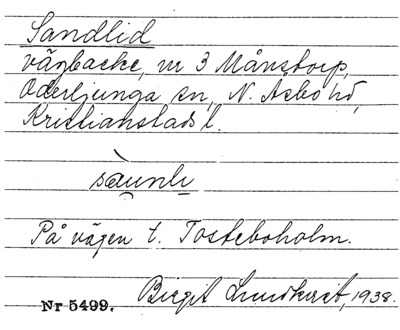 Sandlid
vägbacke, nr 3 Månstorp,
Oderljunga sn, N. Åsbo hd,
Kristianstads l.
På vägen t. Tosteboholm.
Nr 5499. Birgit Lundkvist, 1938.